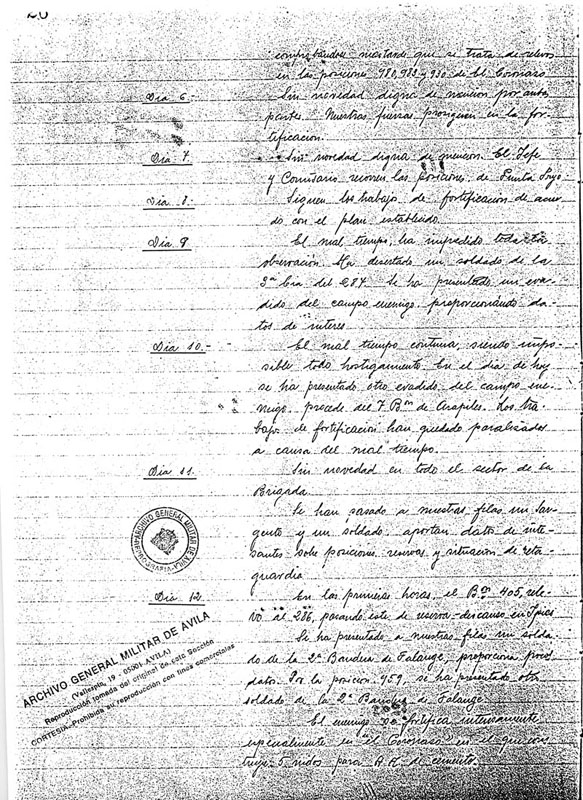 20
comprobándose mostando que se trata de relevos
en las posiciones 980, 983 y 930 de El Coronaso
Dia 6. Sin novedad digna de mencion por ambas
partes. Nuestras fuerzas prosiguen en la for-
tificacion.
Dia 7. Sin novedad digna de mencion. El Jefe
y Comisario recorren las posiciones de Punta
Dia 8. Siguen los trabajos de fortificacion de acuer-
do con el plan establecido.
Dia 9 El mal tiempo, ha impedido toda
observacion. Ha desertado un soldado de la
3ª Cia. del 287. Se ha presentado un eva-
dido del campo enemigo, proporcionando da-
tos de interes
Dia 10.- El mal tiempo continua, siendo impo-
sible todo hostigamiento. En el dia de hoy
se ha presentado otro evadido del campo ene-
migo, procede del 7 Bon de Arapiles. Los tra-
bajos de fortificacion han quedado paralizados
a causa del mal tiempo.
Dia 11. Sin novedad en todo el sector de la
Brigada.
Se han pasado a nuestras filas un Sar-
gento y un soldado, aportan datos de inte-
santes sobre posiciones, reservas y situacion de reta-
guardia
Dia 12. En las primeras horas, el Bon 405, rele-
vó al 286, pasando este de reserva-descanso en
Se ha presentado a nuestras filas un solda-
do de la 2ª Bandera de Falange, proporciona
datos. Por la posicion 959, se ha presentado otro
soldado de la 2ª Bandera de Falange
El enemigo se fortifica intensamente
especialmente en "el Coronaso" en el que cons-
truye 5 nidos para A.A. de cemento.
ARCHIVO GENERAL MILITAR DE AVILA
ARCHIVO GENERAL MILITAR DE AVILA
(Vallespin, 19 - 05001-AVILA)
Reproducción tomada del original de esta Sección
CORTESIA-Prohibida su reproducción con fines comerciales